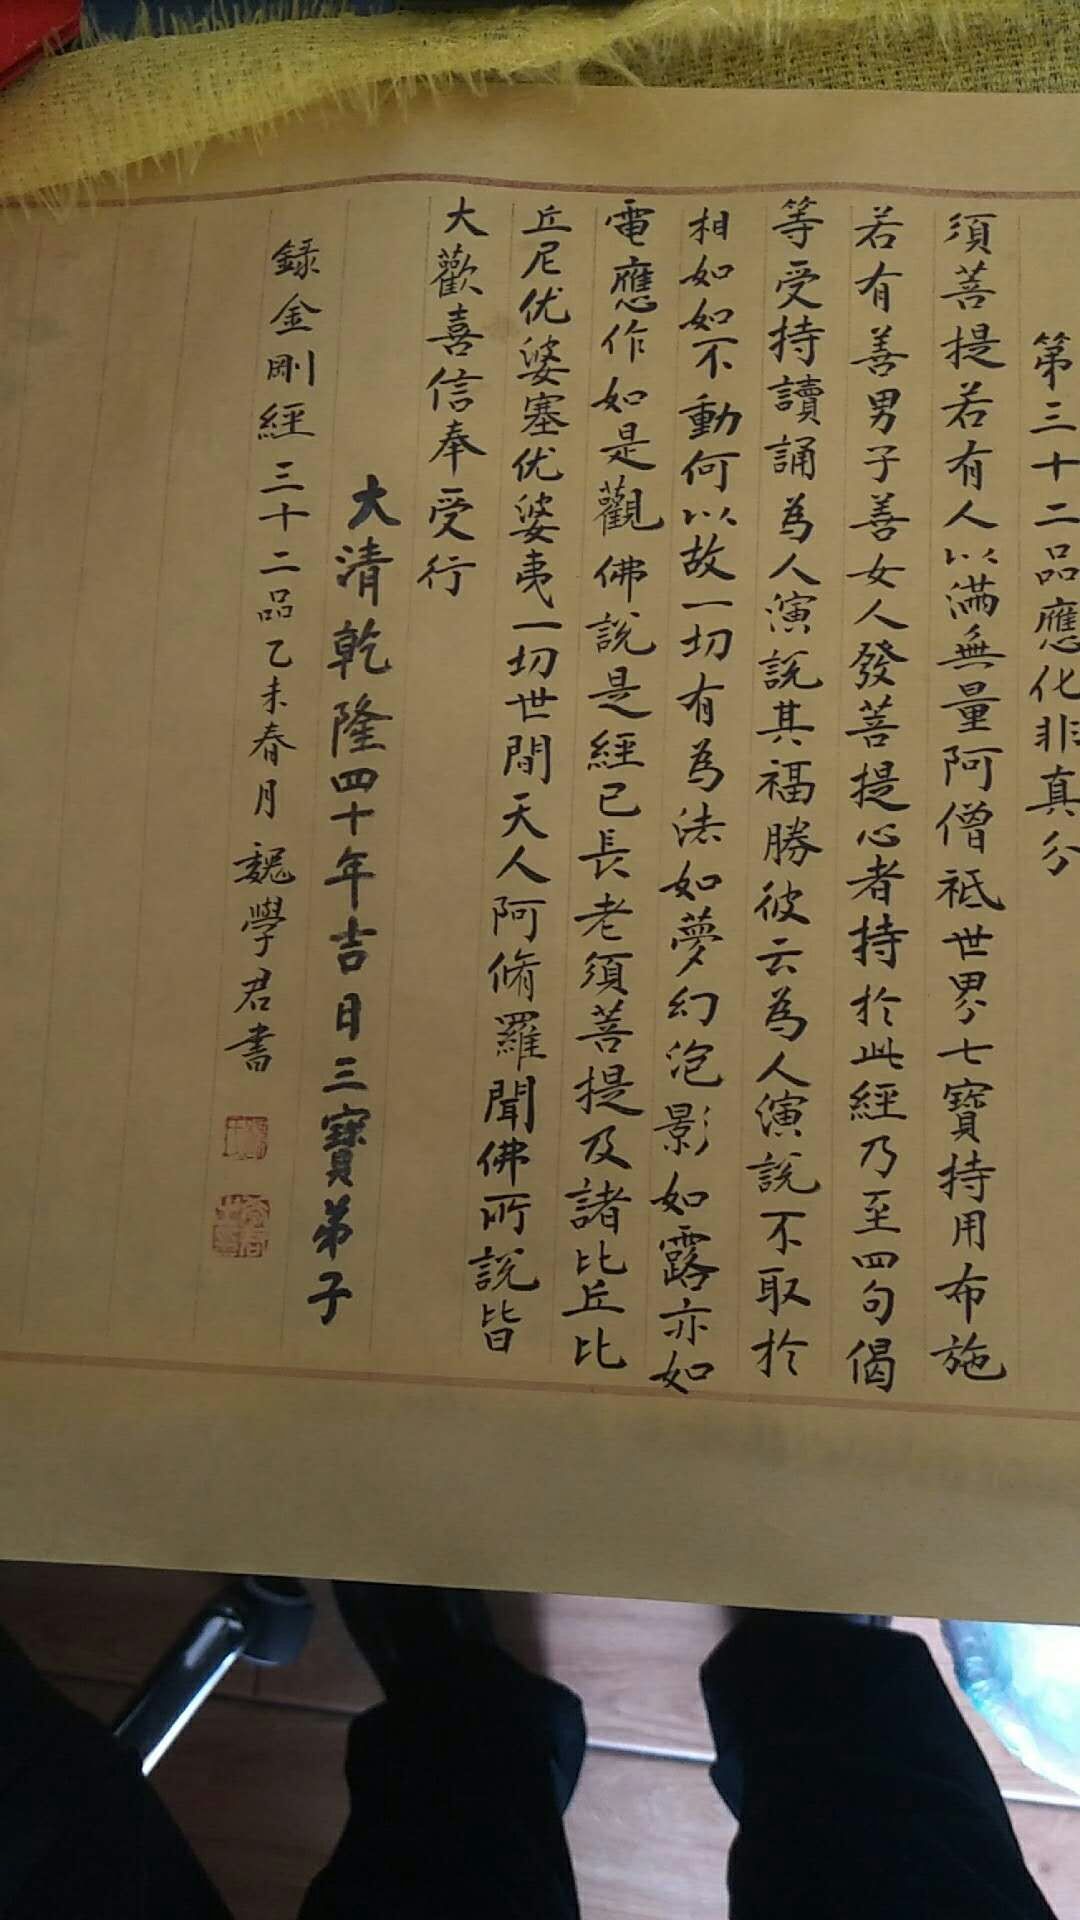 第三十二品應化非真分
須菩提若有人以滿無量阿僧祇世界七寶持用布施
若有善男子善女人發菩提心者持於此經乃至四句偈
等受持讀誦為人演說其福勝彼云為人演說不取於
相如如不動何以故一切有為法如夢幻泡影如露亦如
電應作如是觀佛說是經已長老須菩提及諸比丘比
丘尼优婆塞优婆夷一切世間天人阿脩羅聞佛所說皆
大歡喜信奉受行
大清乾隆四十年吉日三寶弟子
録金剛經三十二品乙未春月魏學君書